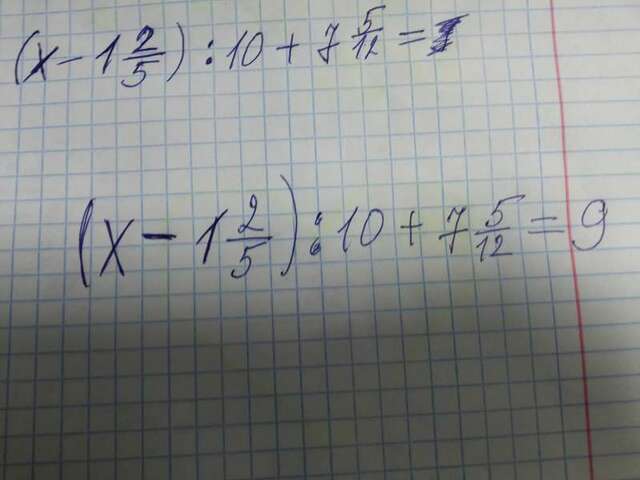 (x - 1 2/5) : 10 + 7 5/12 =
(x - 1 2/5) : 10 + 7 5/12 = 9